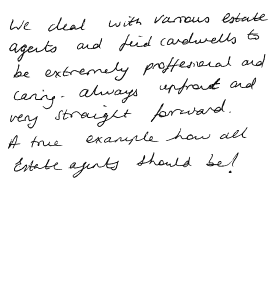 We deal with various estate
agents and find cardwells to
be extremely proffesional and
caring. always upfront and
very straight forward.
A true example how all
Estate agents should be!